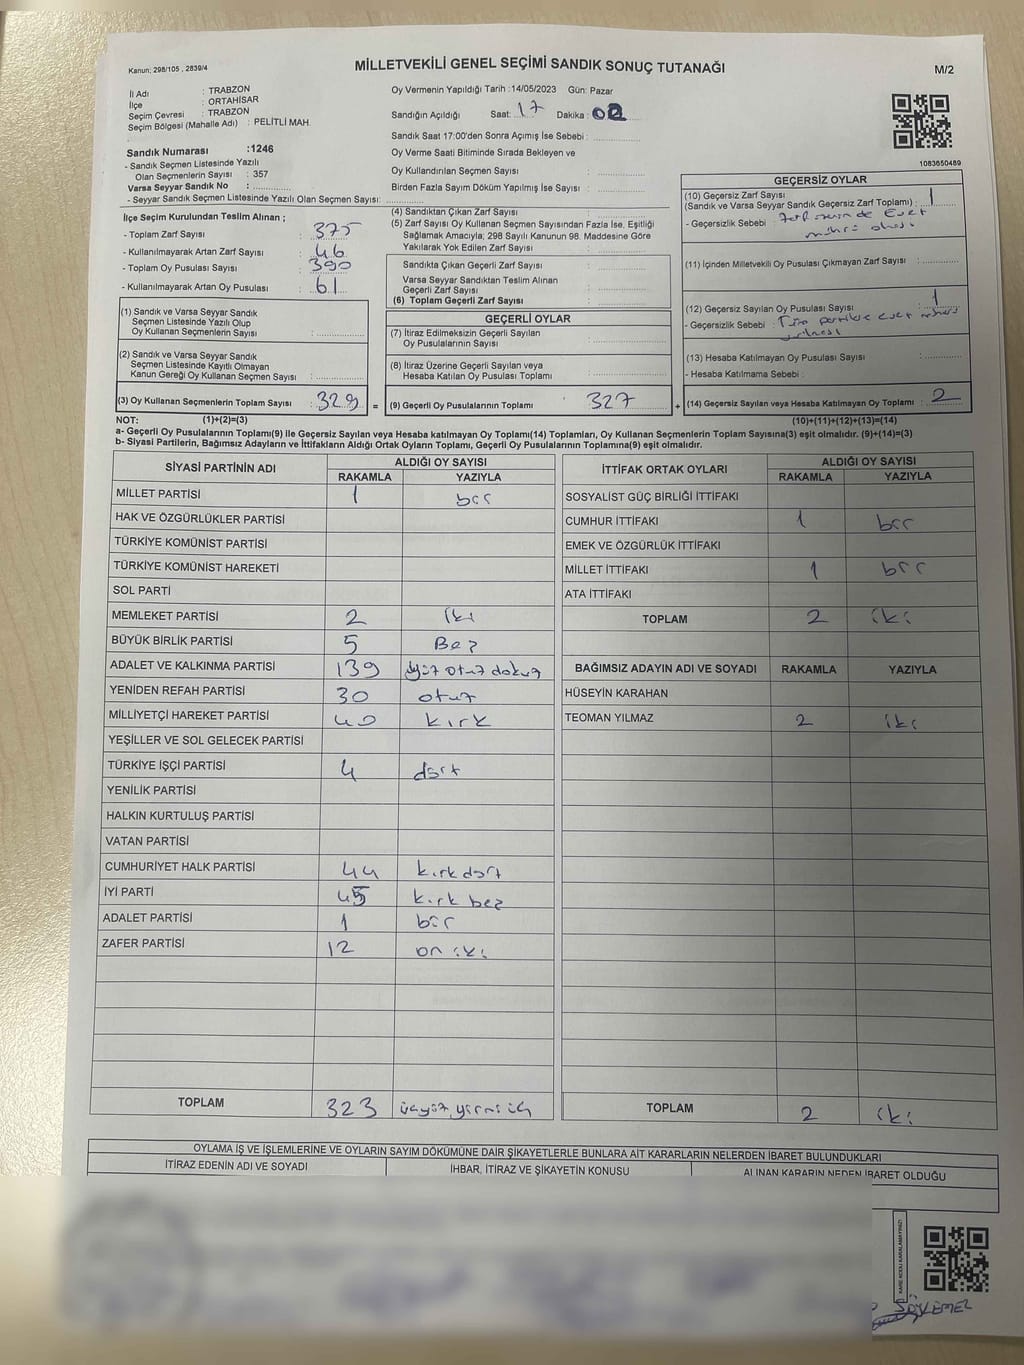 Kanun; 298/105 , 2839/4
MİLLETVEKİLİ GENEL SEÇİMİ SANDIK SONUÇ TUTANAĞI
M/2
İl Adı : TRABZON
İlçe : ORTAHİSAR
Seçim Çevresi : TRABZON
Seçim Bölgesi (Mahalle Adı) : PELİTLİ MAH.
Sandık Numarası :1246
- Sandık Seçmen Listesinde Yazılı
Olan Seçmenlerin Sayısı : 357
Varsa Seyyar Sandık No :
- Seyyar Sandık Seçmen Listesinde Yazılı Olan Seçmen Sayısı:
Oy Vermenin Yapıldığı Tarih :14/05/2023 Gün: Pazar
Sandığın Açıldığı Saat: 17 Dakika: 02
Sandık Saat 17:00'den Sonra Açımış İse Sebebi :
Oy Verme Saati Bitiminde Sırada Bekleyen ve
Oy Kullandırılan Seçmen Sayısı :
Birden Fazla Sayım Döküm Yapılmış İse Sayısı :
1083650489
İlçe Seçim Kurulundan Teslim Alınan ;
- Toplam Zarf Sayısı : 375
- Kullanılmayarak Artan Zarf Sayısı : 46
- Toplam Oy Pusulası Sayısı : 390
- Kullanılmayarak Artan Oy Pusulası : 61
(1) Sandık ve Varsa Seyyar Sandık
Seçmen Listesinde Yazılı Olup
Oy Kullanan Seçmenlerin Sayısı :
(2) Sandık ve Varsa Seyyar Sandık
Seçmen Listesinde Kayıtlı Olmayan
Kanun Gereği Oy Kullanan Seçmen Sayısı :
(3) Oy Kullanan Seçmenlerin Toplam Sayısı : 329 =
(4) Sandıktan Çıkan Zarf Sayısı :
(5) Zarf Sayısı Oy Kullanan Seçmen Sayısından Fazla İse, Eşitliği
Sağlamak Amacıyla; 298 Sayılı Kanunun 98. Maddesine Göre
Yakılarak Yok Edilen Zarf Sayısı :
Sandıkta Çıkan Geçerli Zarf Sayısı :
Varsa Seyyar Sandıktan Teslim Alınan
Geçerli Zarf Sayısı :
(6) Toplam Geçerli Zarf Sayısı :
GEÇERLİ OYLAR
(7) İtiraz Edilmeksizin Geçerli Sayılan
Oy Pusulalarının Sayısı :
(8) İtiraz Üzerine Geçerli Sayılan veya
Hesaba Katılan Oy Pusulası Toplamı :
(9) Geçerli Oy Pusulalarının Toplamı : 327 +
GEÇERSİZ OYLAR
(10) Geçersiz Zarf Sayısı
(Sandık ve Varsa Seyyar Sandık Geçersiz Zarf Toplamı) : 1
- Geçersizlik Sebebi : Zarf üzerinde Evet
mührü olması
(11) İçinden Milletvekili Oy Pusulası Çıkmayan Zarf Sayısı :
(12) Geçersiz Sayılan Oy Pusulası Sayısı : 1
- Geçersizlik Sebebi : Tüm partilere evet mührü
(13) Hesaba Katılmayan Oy Pusulası Sayısı :
- Hesaba Katılmama Sebebi :
(14) Geçersiz Sayılan veya Hesaba Katılmayan Oy Toplamı : 2
NOT: (1)+(2)=(3) (10)+(11)+(12)+(13)=(14)
a- Geçerli Oy Pusulalarının Toplamı(9) ile Geçersiz Sayılan veya Hesaba katılmayan Oy Toplamı(14) Toplamları, Oy Kullanan Seçmenlerin Toplam Sayısına(3) eşit olmalıdır. (9)+(14)=(3)
b- Siyasi Partilerin, Bağımsız Adayların ve İttifakların Aldığı Ortak Oyların Toplamı, Geçerli Oy Pusulalarının Toplamına(9) eşit olmalıdır.
SİYASİ PARTİNİN ADI ALDIĞI OY SAYISI
RAKAMLA YAZIYLA
MİLLET PARTİSİ 1 bir
HAK VE ÖZGÜRLÜKLER PARTİSİ
TÜRKİYE KOMÜNİST PARTİSİ
TÜRKİYE KOMÜNİST HAREKETİ
SOL PARTİ
MEMLEKET PARTİSİ 2 iki
BÜYÜK BİRLİK PARTİSİ 5 Beş
ADALET VE KALKINMA PARTİSİ 139 yüz otuz dokuz
YENİDEN REFAH PARTİSİ 30 otuz
MİLLİYETÇİ HAREKET PARTİSİ 40 kırk
YEŞİLLER VE SOL GELECEK PARTİSİ
TÜRKİYE İŞÇİ PARTİSİ 4 dört
YENİLİK PARTİSİ
HALKIN KURTULUŞ PARTİSİ
VATAN PARTİSİ
CUMHURİYET HALK PARTİSİ 44 kırk dört
İYİ PARTİ 45 kırk beş
ADALET PARTİSİ 1 bir
ZAFER PARTİSİ 12 on iki
TOPLAM 323 üçyüz yirmi üç
İTTİFAK ORTAK OYLARI ALDIĞI OY SAYISI
RAKAMLA YAZIYLA
SOSYALİST GÜÇ BİRLİĞİ İTTİFAKI
CUMHUR İTTİFAKI 1 bir
EMEK VE ÖZGÜRLÜK İTTİFAKI
MİLLET İTTİFAKI 1 bir
ATA İTTİFAKI
TOPLAM 2 iki
BAĞIMSIZ ADAYIN ADI VE SOYADI RAKAMLA YAZIYLA
HÜSEYİN KARAHAN
TEOMAN YILMAZ 2 iki
TOPLAM 2 iki
OYLAMA İŞ VE İŞLEMLERİNE VE OYLARIN SAYIM DÖKÜMÜNE DAİR ŞİKAYETLERLE BUNLARA AİT KARARLARIN NELERDEN İBARET BULUNDUKLARI
İTİRAZ EDENİN ADI VE SOYADI İHBAR, İTİRAZ VE ŞİKAYETİN KONUSU ALINAN KARARIN NEDEN İBARET OLDUĞU
KARE KODU KARALAMAYINIZ!
SÖYLEMEZ